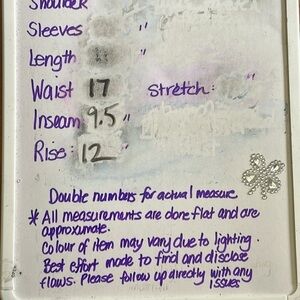 Shoulder
Sleeves "
Length "
Waist 17 Stretch: "
Inseam 9.5"
Rise: 12
Double numbers for actual measure
* All measurements are done flat and are
approximate.
Colour of item may vary due to lighting.
Best effort made to find and disclose
flaws. Please follow up directly with any
issues